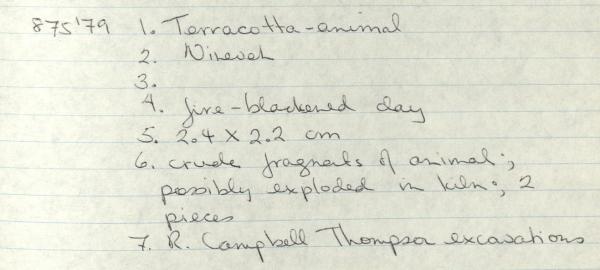 875'79 1. Terracotta-animal
2. Nineveh
3.
4. fire-blackened clay
5. 2.4 X 2.2 cm
6. crude fragments of animal;
possibly exploded in kiln; 2
pieces
7. R. Campbell Thompson excavations